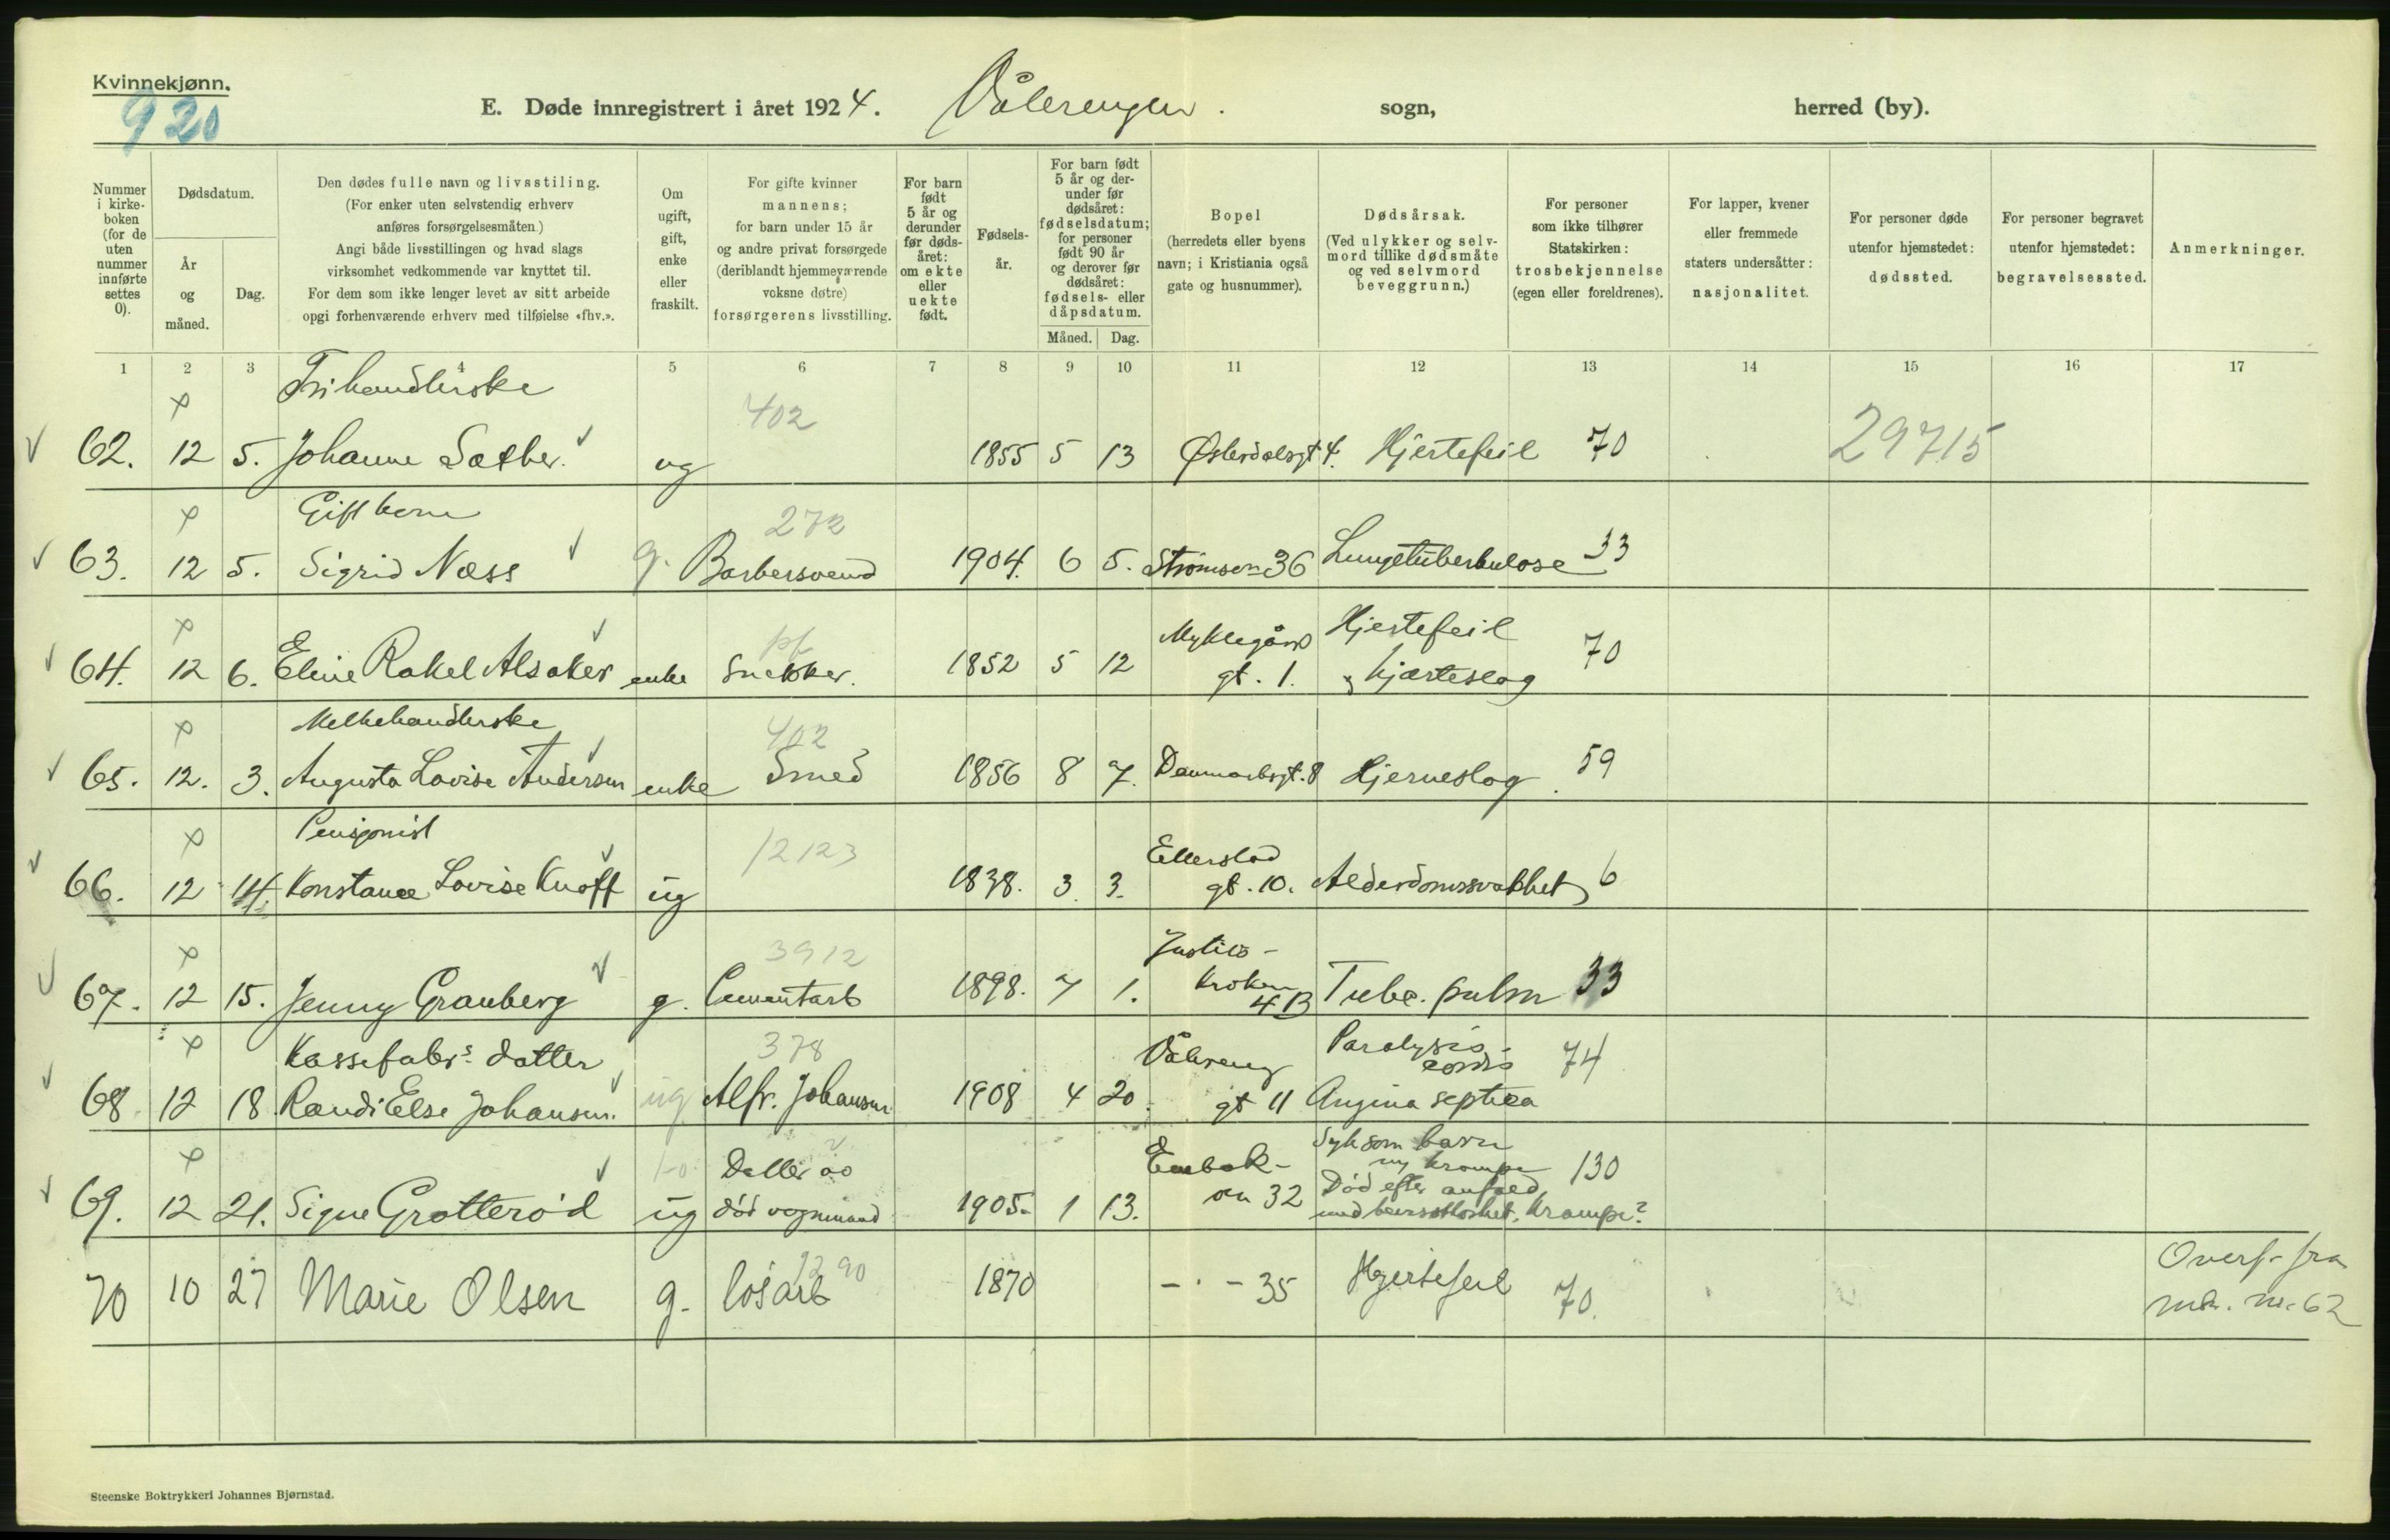 Kvinnekjønn.
920
E. Døde innregistrert i året 1924. Vålerengen. sogn, herred (by).
Nummer i kirkeboken (for de uten nummer innførte settes 0).
Dødsdatum.
År og måned.
Dag.
Den dødes fulle navn og livsstiling.
(For enker uten selvstendig erhverv
anføres forsørgelsesmåten)
Angi både livsstillingen og hvad slags
virksomhet vedkommende var knyttet til.
For dem som ikke lenger levet av sitt arbeide
opgi forhenværende erhverv med tilføielse «fhv.».
Om ugift, gift, enke eller fraskilt.
For gifte kvinner
mannens;
for barn under 15 år
og andre privat forsørgede
(deriblandt hjemmeværende
voksne døtre)
forsørgerens livsstilling.
For barn født 5 år og derunder før dødsåret: om ekte eller uekte født.
Fødselsår.
For barn født 5 år og derunder før dødsåret: fødselsdatum; for personer født 90 år og derover før dødsåret: fødsels- eller dåpsdatum.
Måned. Dag.
Bopel
(herredets eller byens
navn; i Kristiania også
gate og husnummer).
Dødsårsak.
(Ved ulykker og selvmord tillike dødsmåte
og ved selvmord
beveggrunn.)
For personer
som ikke tilhører
Statskirken:
trosbekjennelse
(egen eller foreldrenes).
For lapper, kvener
eller fremmede
staters undersåtter:
nasjonalitet.
For personer døde
utenfor hjemstedet:
dødssted.
For personer begravet
utenfor hjemstedet:
begravelsessted.
Anmerkninger.
1 2 3 4 5 6 7 8 9 10 11 12 13 14 15 16 17
handlerske 402
62. 12 5. Johanne Sæther. ug 1855 5 13 Østerdalsgt 4. Hjertefeil 70 29715
Gift kone 272
63. 12 5. Sigrid Næss g. Barbersvend 1904. 6 5. Strømsvn 36 Lungetuberkulose 33
pf Myklegård Hjertefeil
64. 12 6. Eline Rakel Alsaker enke Snekker. 1852 5 12 gt. 1. hjærteslag 70
Melkehandlerske 402
65. 12. 3. Augusta Lovise Andersen enke Smed 1856 8 7. Danmarksgt. 8 Hjerneslag. 59
Pensjonist 12123 Ellerslad
66. 12 14. Konstance Lovise Knoff ug 1838. 3. 3. gt. 10. Alderdomssvakhet 6
3912 Justits-
67. 12 15. Jenny Granberg g. Cementarb 1898. 7 1. kroken 4 B Tube. pulm 33
Kassefabrs. datter 378 Vålreng Paralysis cordis 74
68 12 18. Randi Else Johansen. ug Alfr. Johansen 1908 4 20. gt 11 Angina septica
Datter av Enebak- Syk som barn
krampe 130
69. 12 21. Signe Grotterød ug død vognmand 1905. 1 13. vn 32 Død efter anfald
med bevisstløshet. Krampe?
1290
70 10 27 Marie Olsen g. løsarb 1870 - · - 35 Hjertefeil 70. Overf. fra
nr. 62
Steenske Boktrykkeri Johannes Bjørnstad.